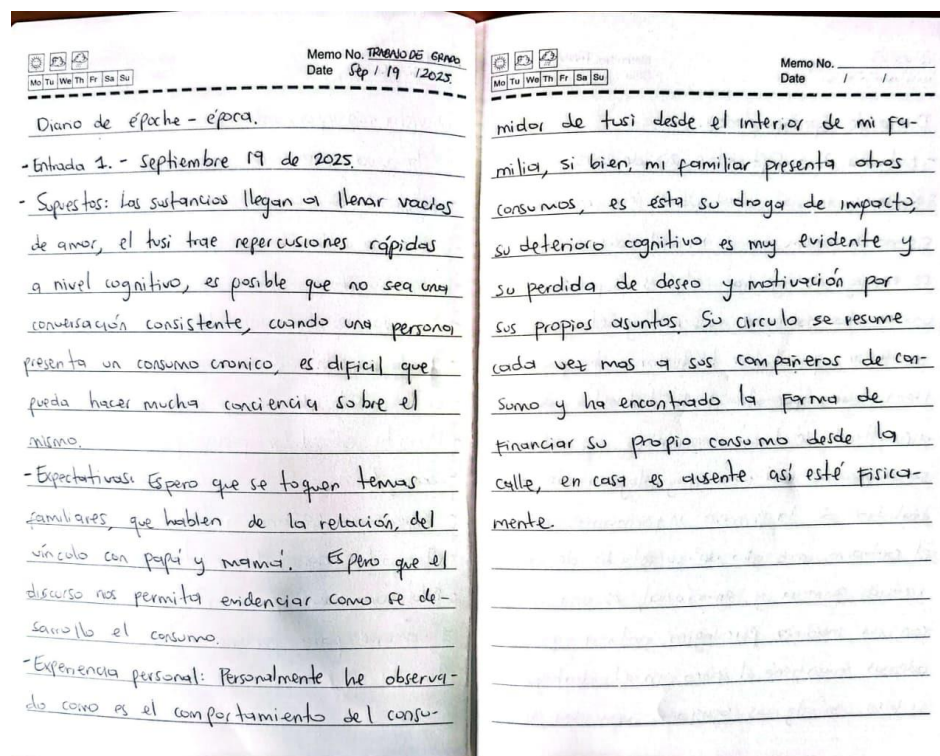 Memo No. TRABAJO DE GRADO
Mo Tu We Th Fr Sa Su
Date Sep / 19 / 2025
Diario de époche - época.
- Entrada 1. - Septiembre 19 de 2025.
- Supuestos: Las sustancias llegan a llenar vacios
de amor, el tusi trae repercusiones rápidas
a nivel cognitivo, es posible que no sea una
conversación consistente, cuando una persona
presenta un consumo cronico, es dificil que
pueda hacer mucha conciencia sobre el
mismo.
- Expectativas: Espero que se toquen temas
familiares, que hablen de la relación, del
vínculo con papá y mamá. Espero que el
discurso nos permita evidenciar como se de-
sarrollo el consumo.
- Experiencia personal: Personalmente he observa-
do como es el comportamiento del consu-
Memo No.
Mo Tu We Th Fr Sa Su
Date / /
midor de tusi desde el interior de mi fa-
milia, si bien, mi familiar presenta otros
consumos, es esta su droga de impacto,
su deterioro cognitivo es muy evidente y
su perdida de deseo y motivación por
sus propios asuntos. Su circulo se resume
cada vez mas a sus compañeros de con-
sumo y ha encontrado la forma de
financiar su propio consumo desde la
calle, en casa es ausente así esté fisica-
mente.